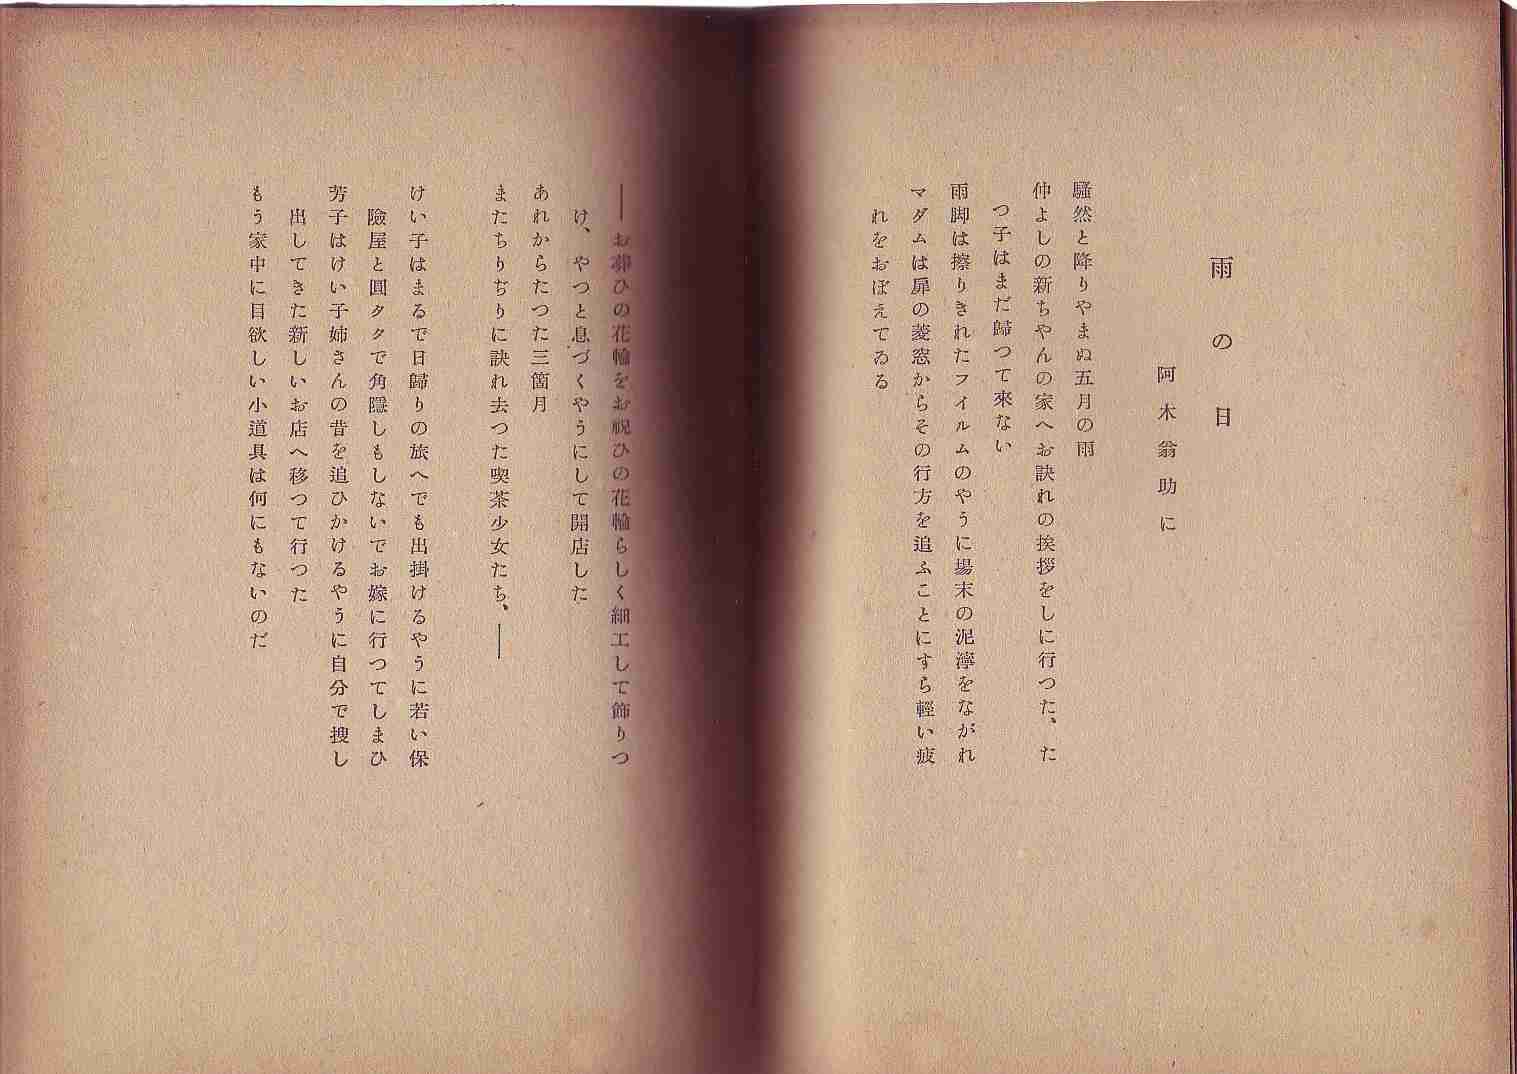 雨の日
阿木翁助に
騷然と降りやまぬ五月の雨
仲よしの新ちやんの家へお訣れの挨拶をしに行つた、た
つ子はまだ歸つて來ない
雨脚は擦りきれたフイルムのやうに場末の泥濘をながれ
マダムは扉の菱窓からその行方を追ふことにすら輕い疲
れをおぼえてゐる
――お葬ひの花輪をお祝ひの花輪らしく細工して飾りつ
け、やつと息づくやうにして開店した
あれからたつた三箇月
またちりぢりに訣れ去つた喫茶少女たち、――
けい子はまるで日歸りの旅へでも出掛けるやうに若い保
險屋と圓タクで角隱しもしないでお嫁に行つてしまひ
芳子はけい子姉さんの昔を追ひかけるやうに自分で搜し
出してきた新しいお店へ移つて行つた
もう家中に目欲しい小道具は何にもないのだ